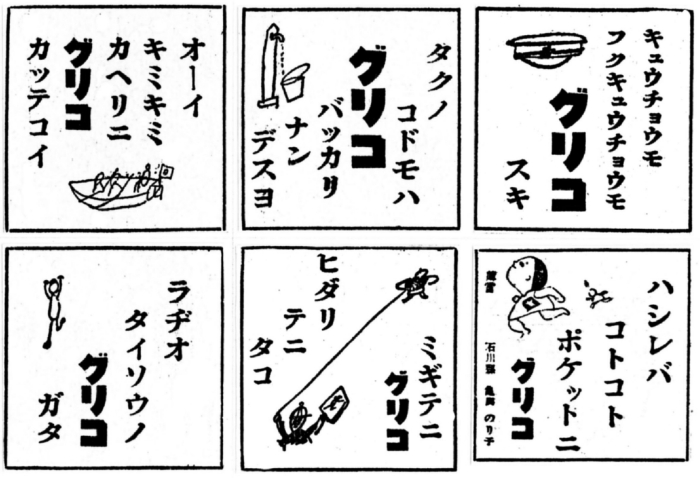 キュウチョウモ
フクキュウチョウモ
グリコ
スキ
タクノ
コドモハ
グリコ
バッカリ
ナン
デスヨ
オーイ
キミキミ
カヘリニ
グリコ
カッテコイ
ハシレバ
コトコト
ポケットニ
グリコ
石川縣 のり子
ミギテニ
グリコ
ヒダリ
テニ
タコ
ラヂオ
タイソウノ
グリコ
ガタ